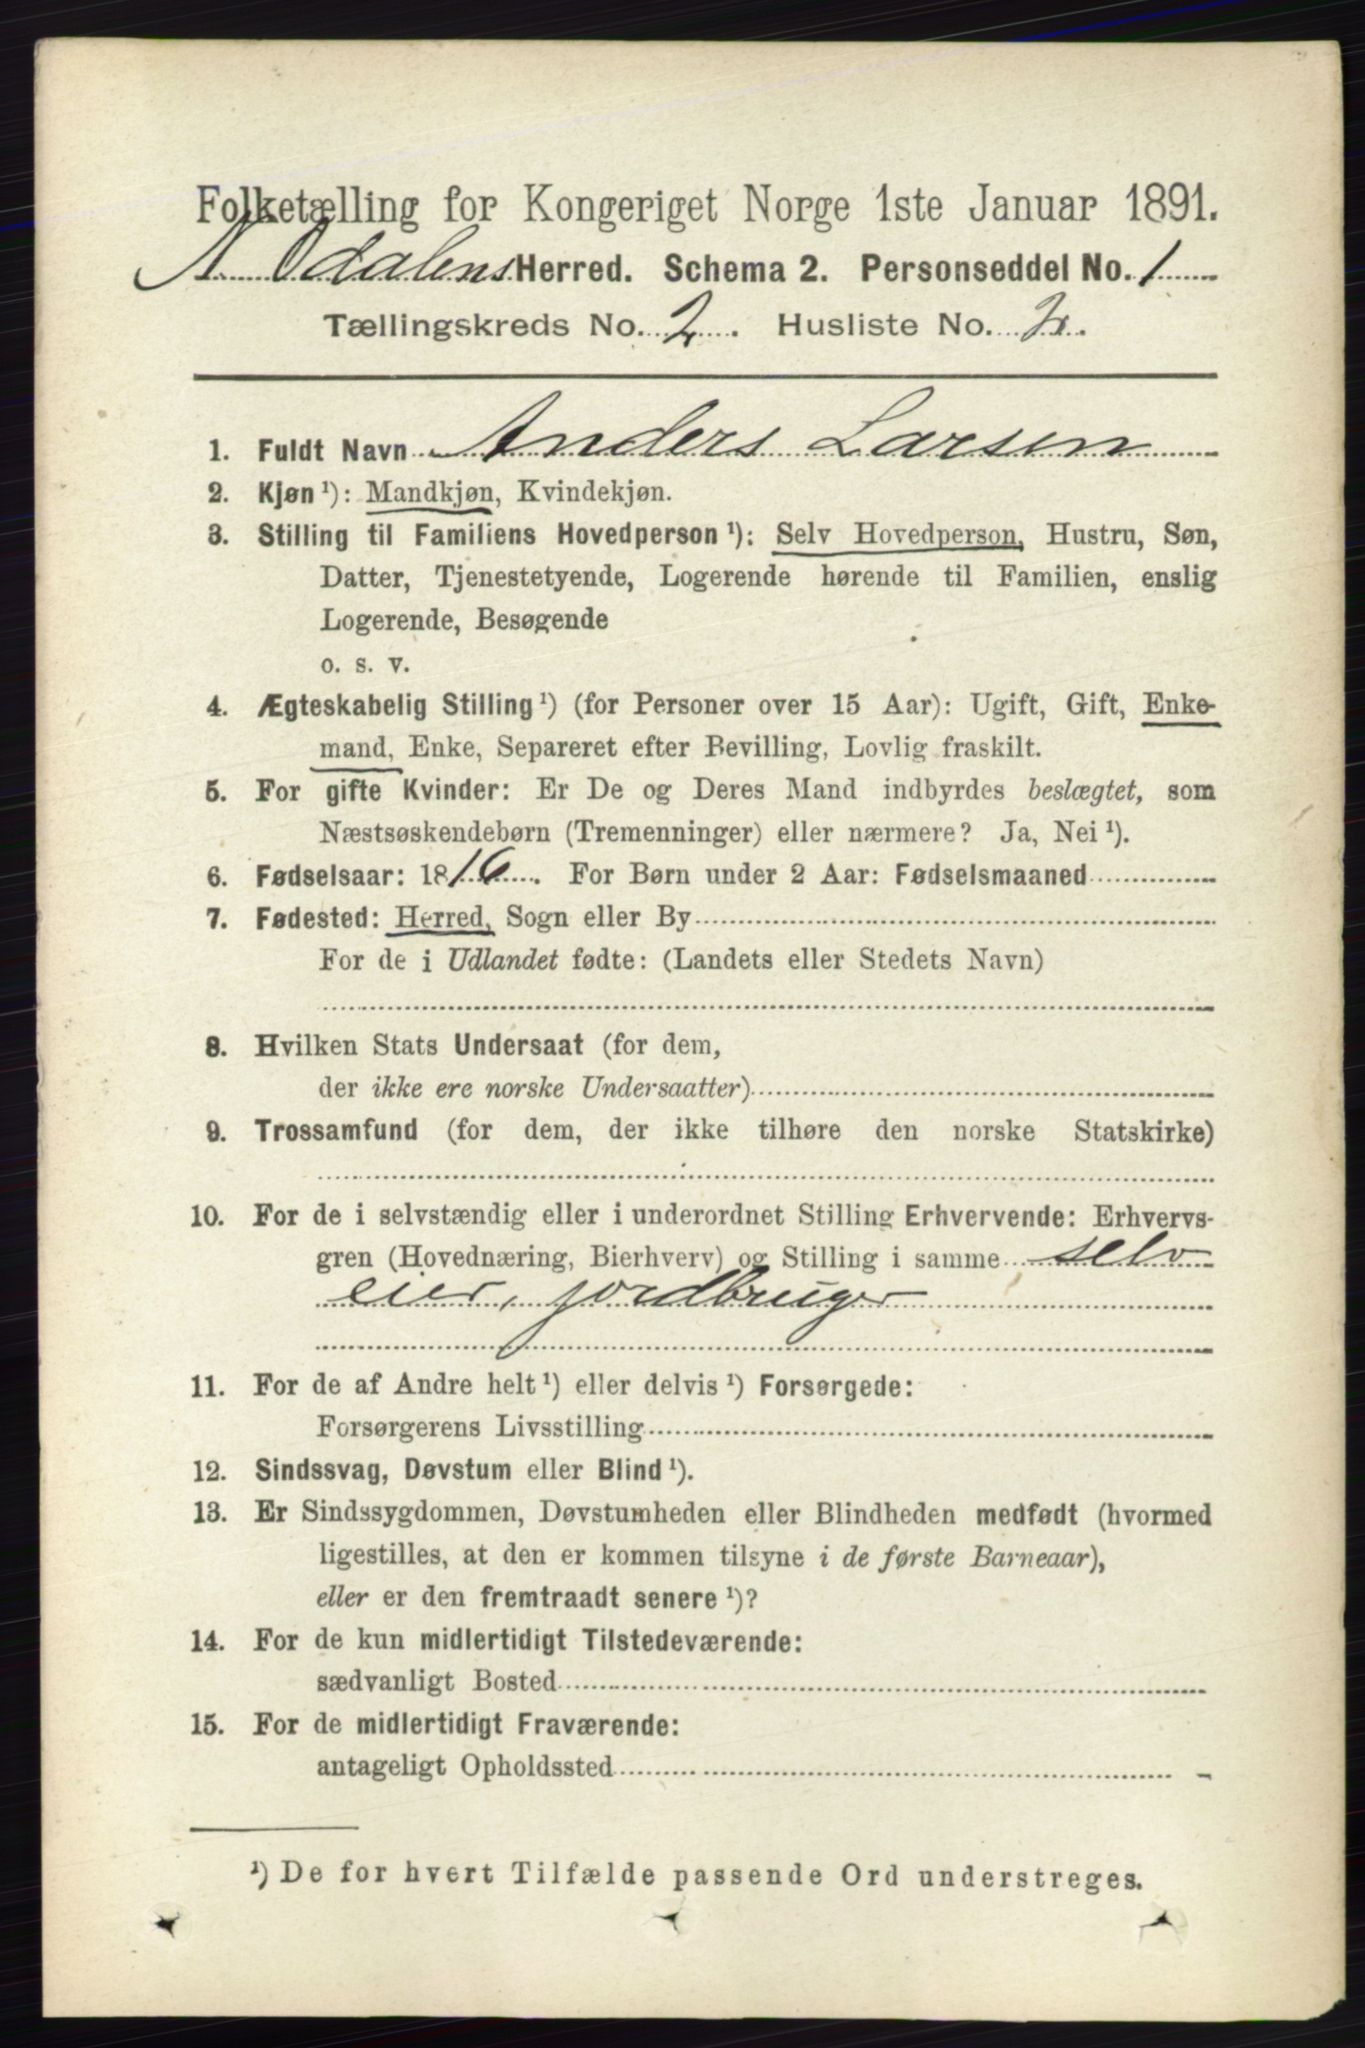 Folketælling for Kongeriget Norge 1ste Januar 1891.
N. Odalens Herred. Schema 2. Personseddel No. 1
Tællingskreds No. 2. Husliste No.
1. Fuldt Navn Anders Larsen
2. Kjøn ¹): Mandkjøn, Kvindekjøn.
3. Stilling til Familiens Hovedperson ¹): Selv Hovedperson, Hustru, Søn,
Datter, Tjenestetyende, Logerende hørende til Familien, enslig
Logerende, Besøgende
o. s. v.
4. Ægteskabelig Stilling ¹) (for Personer over 15 Aar): Ugift, Gift, Enke-
mand, Enke, Separeret efter Bevilling, Lovlig fraskilt.
5. For gifte Kvinder: Er De og Deres Mand indbyrdes beslægtet, som
Næstsøskendebørn (Tremenninger) eller nærmere? Ja, Nei ¹).
6. Fødselsaar: 1816. For Børn under 2 Aar: Fødselsmaaned
7. Fødested: Herred, Sogn eller By
For de i Udlandet fødte: (Landets eller Stedets Navn)
8. Hvilken Stats Undersaat (for dem,
der ikke ere norske Undersaatter)
9. Trossamfund (for dem, der ikke tilhøre den norske Statskirke)
10. For de i selvstændig eller i underordnet Stilling Erhvervende: Erhvervs-
gren (Hovednæring, Bierhverv) og Stilling i samme selv
eier, jordbruger
11. For de af Andre helt ¹) eller delvis ¹) Forsørgede:
Forsørgerens Livsstilling
12. Sindssvag, Døvstum eller Blind ¹).
13. Er Sindssygdommen, Døvstumheden eller Blindheden medfødt (hvormed
ligestilles, at den er kommen tilsyne i de første Barneaar),
eller er den fremtraadt senere ¹)?
14. For de kun midlertidigt Tilstedeværende:
sædvanligt Bosted
15. For de midlertidigt Fraværende:
antageligt Opholdssted
¹) De for hvert Tilfælde passende Ord understreges.